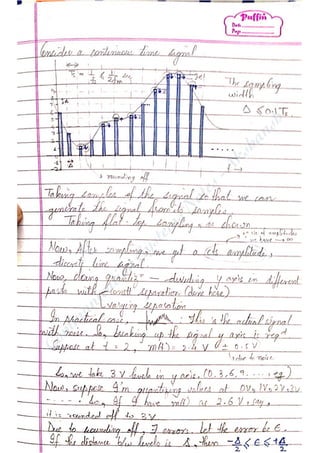 Puffin
Date
Page
Consider a continuous time signal
The sampling
width
Δ ≤ 0.1Ts
rounding off
Taking samples of the signal so that we can
generate the signal from its samples
Taking flat top sampling, as shown
Now, After sampling, we get a cts amplitude,
discrete time signal
Now, doing quantizn — dividing y axis in different
parts with constt separation (done here)
varying separation
In practical case, : This is the actual signal
with noise. So, breaking up the signal y axis is reqd
Suppose at t = 2, m(t) = 2.4 V ± 0.5 V
due to noise
So, we take 3V levels in y axis. (0, 3, 6, 9...., eg)
Now, suppose I'm quantizing values at 0V, 1V, 2V, 3V
So, If I have m(t) as 2.6 V, say,
it is rounded off to 3V
Due to rounding off, ∃ errors. Let the error be ε.
If the distance b/w levels is Δ, then -Δ/2 ≤ ε ≤ +Δ/2